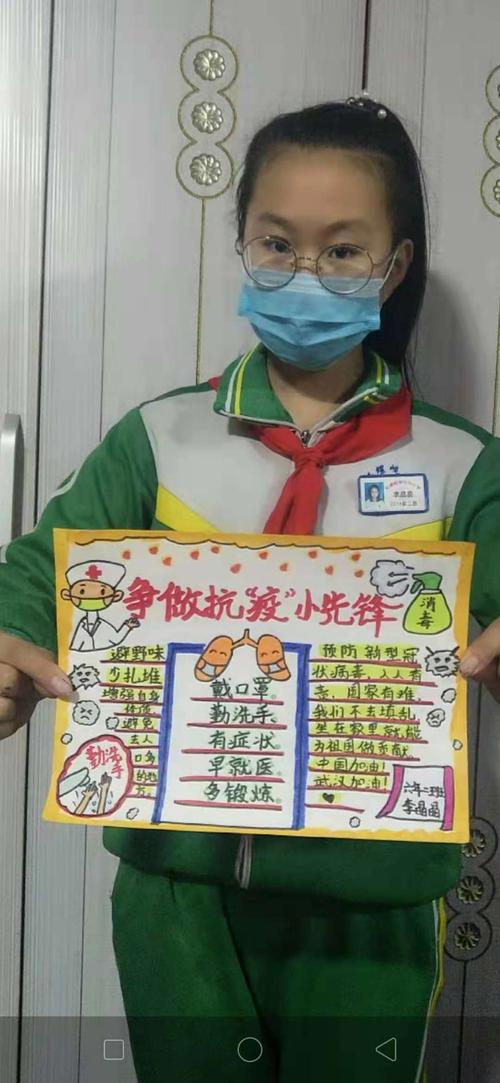 争做抗“疫”小先锋
消毒
避野味
少扎堆
增强自身
体质
避免
去人
口多
的地
方。
勤洗手
戴口罩。
勤洗手。
有症状。
早就医。
多锻炼。
预防新型冠
状病毒,人人有
责,国家有难,
我们不去填乱,
坐在家里就能
为祖国做贡献.
中国加油!
武汉加油!
六年二班
李晶晶